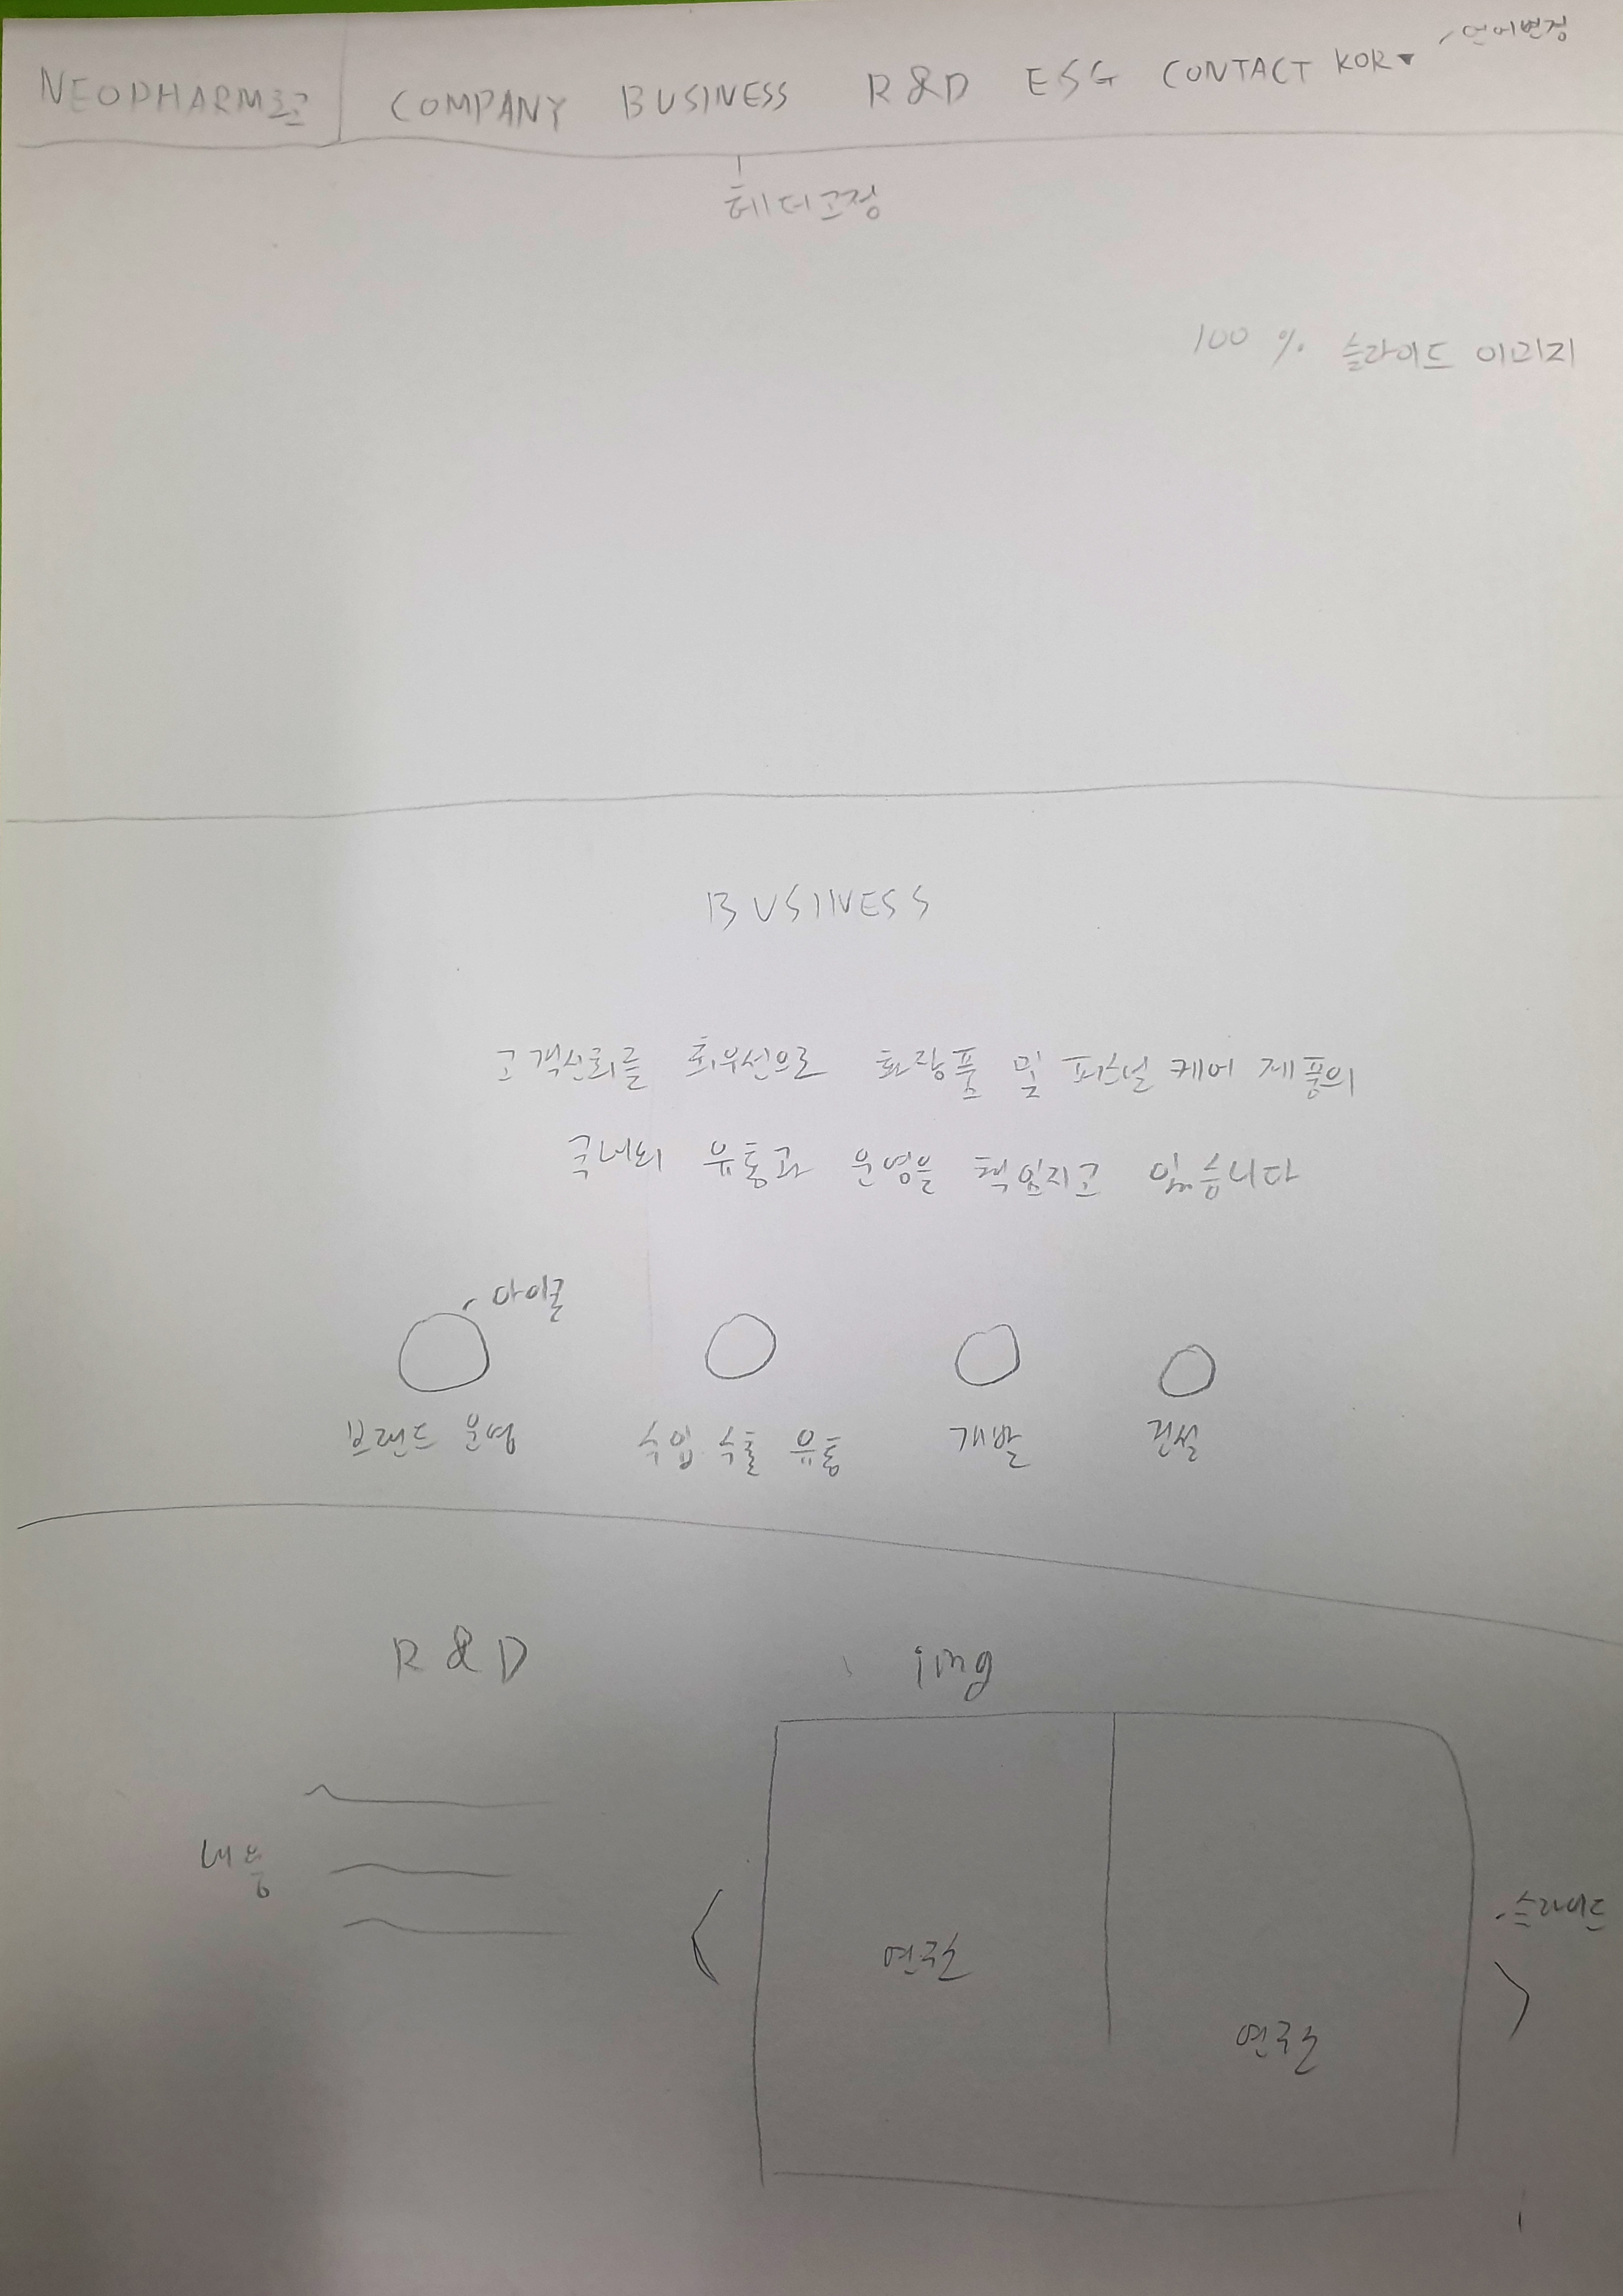 언어변경
NEOPHARM로고 COMPANY BUSINESS R&D ESG CONTACT KOR
헤더고정
100 % 슬라이드 이미지
BUSINESS
고객신뢰를 최우선으로 화장품 및 퍼스널 케어 제품의
국내외 유통과 운영을 책임지고 있습니다
아이콘
브랜드 운영 수입 수출 유통 개발 건설
R&D img
내용
슬라이드
연구소
연구소